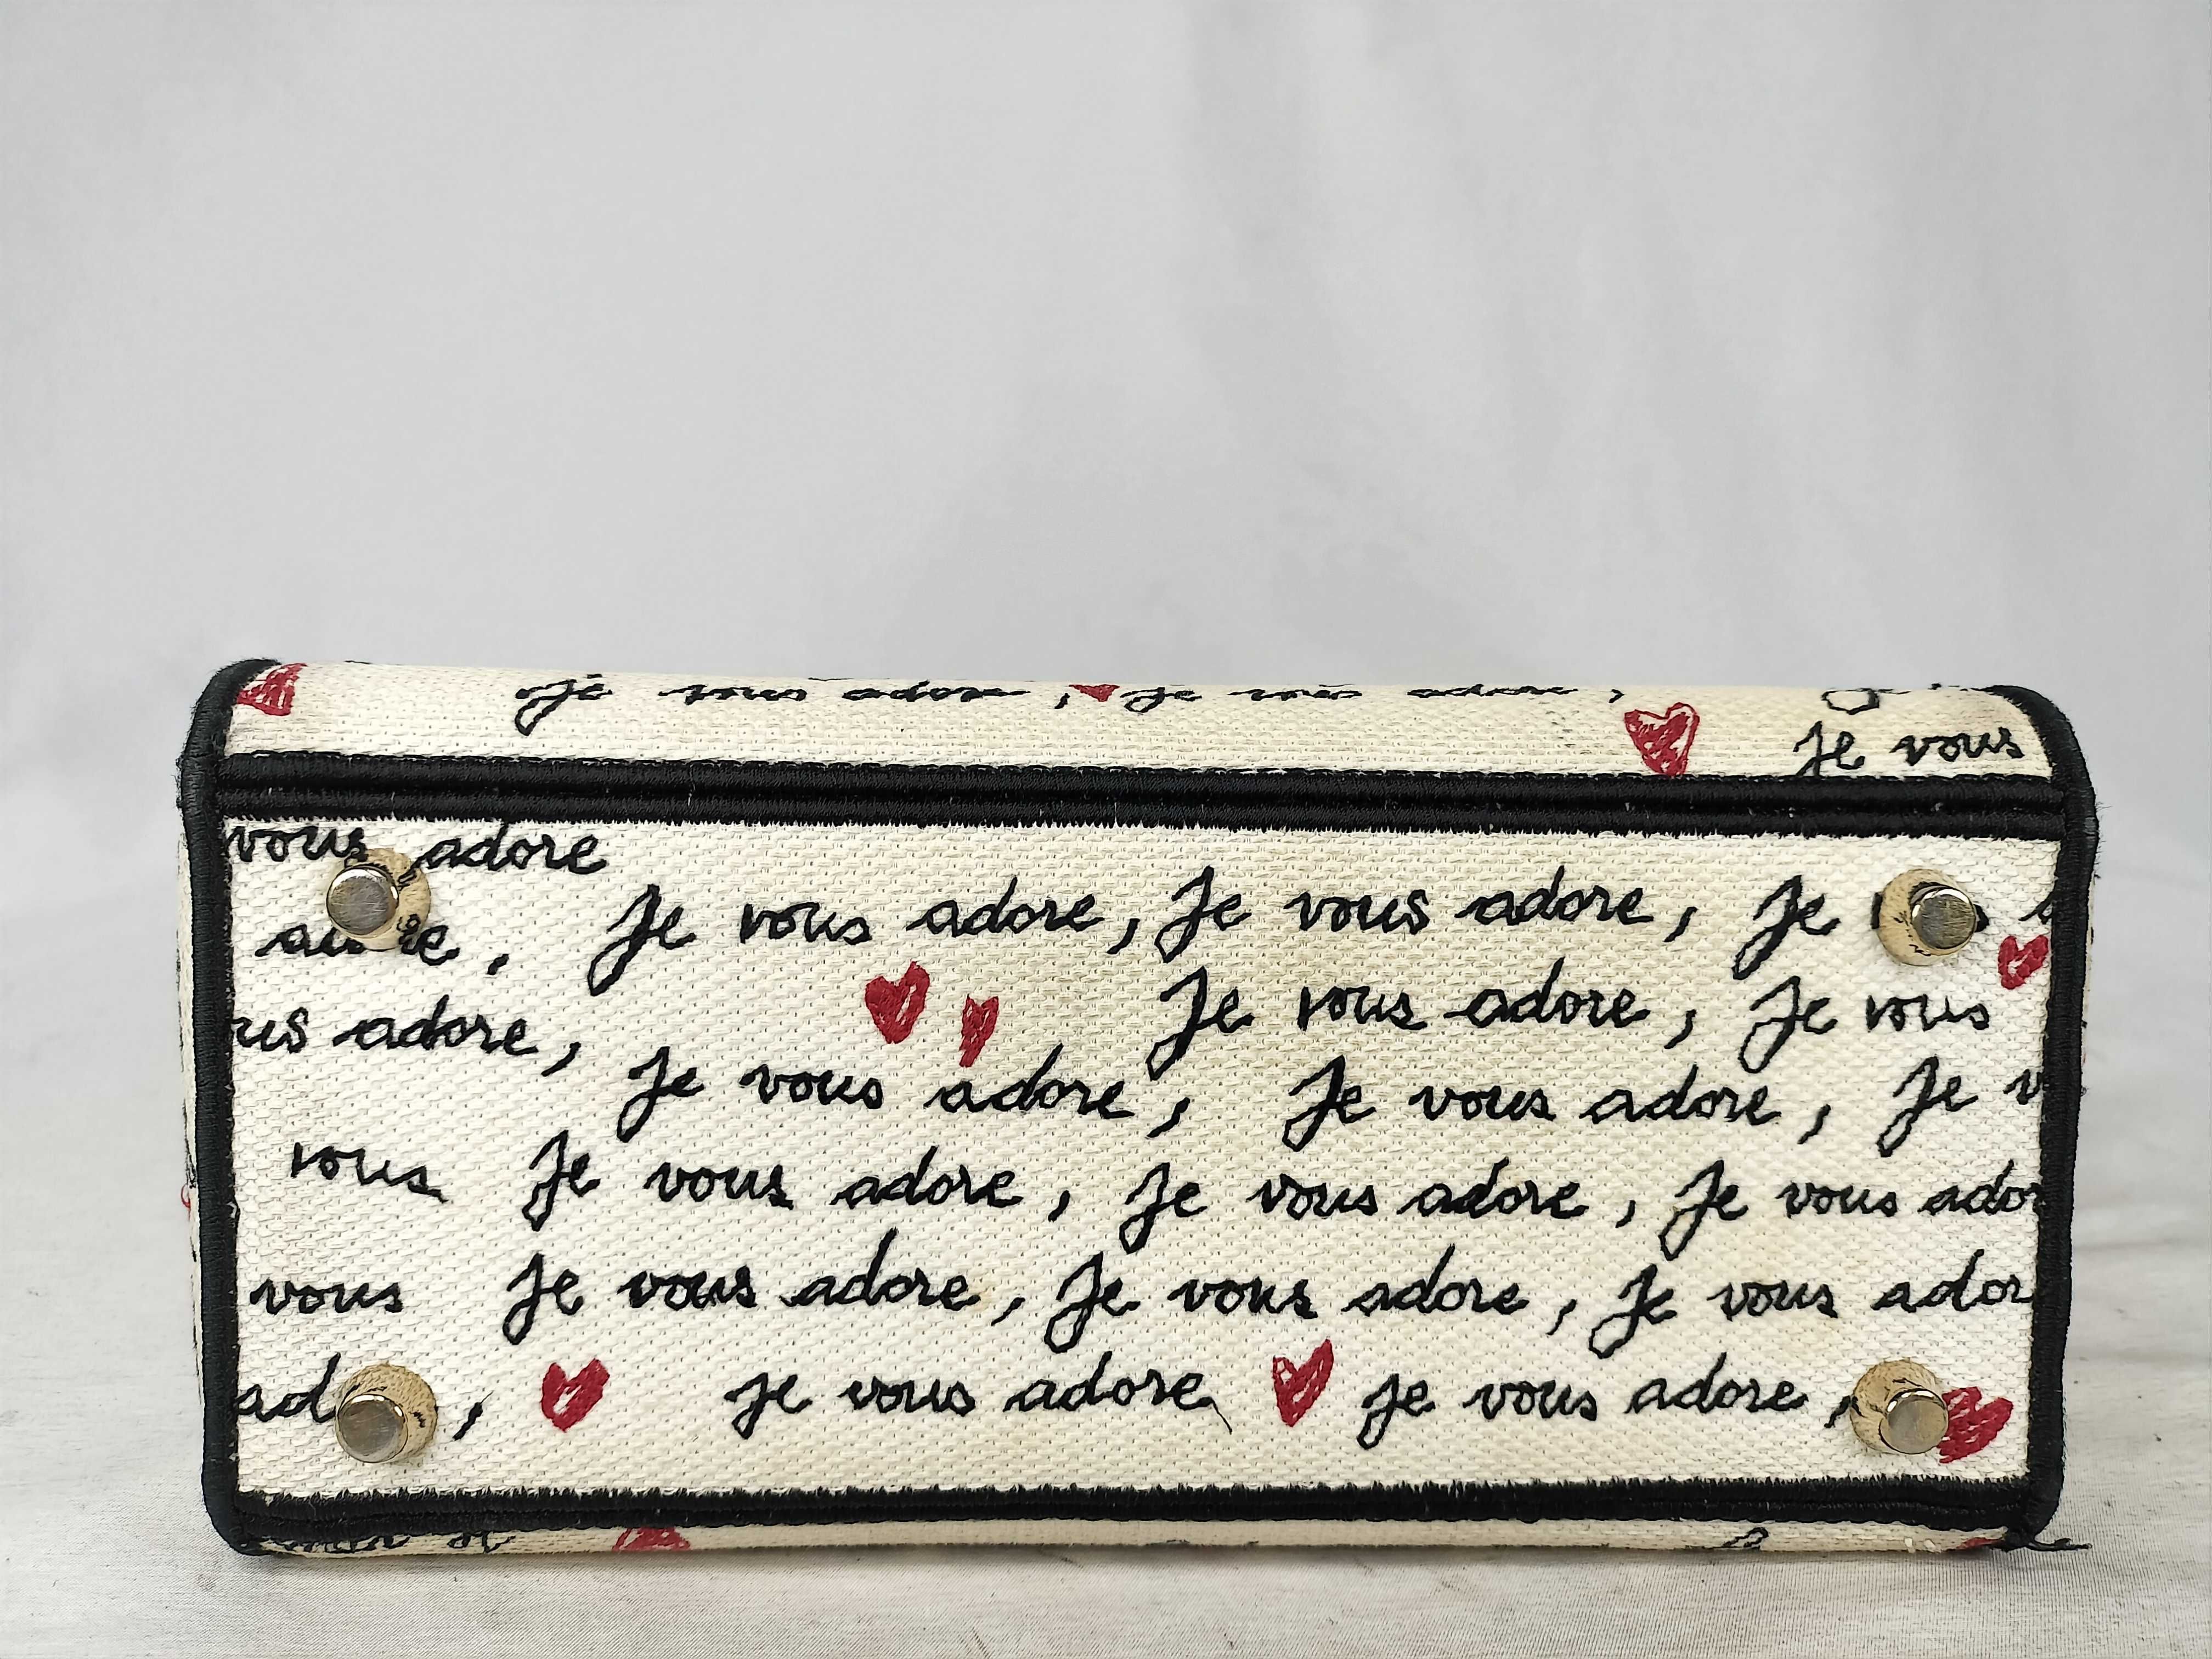 Je vous adore, Je vous adore,
Je vous
vous adore
Je vous adore, Je vous adore, Je
adore,
Je vous adore, Je vous
us adore,
Je vous adore, Je vous adore, Je v
vous Je vous adore, Je vous adore, Je vous ador
vous Je vous adore, Je vous adore, Je vous ador
ad , je vous adore je vous adore,